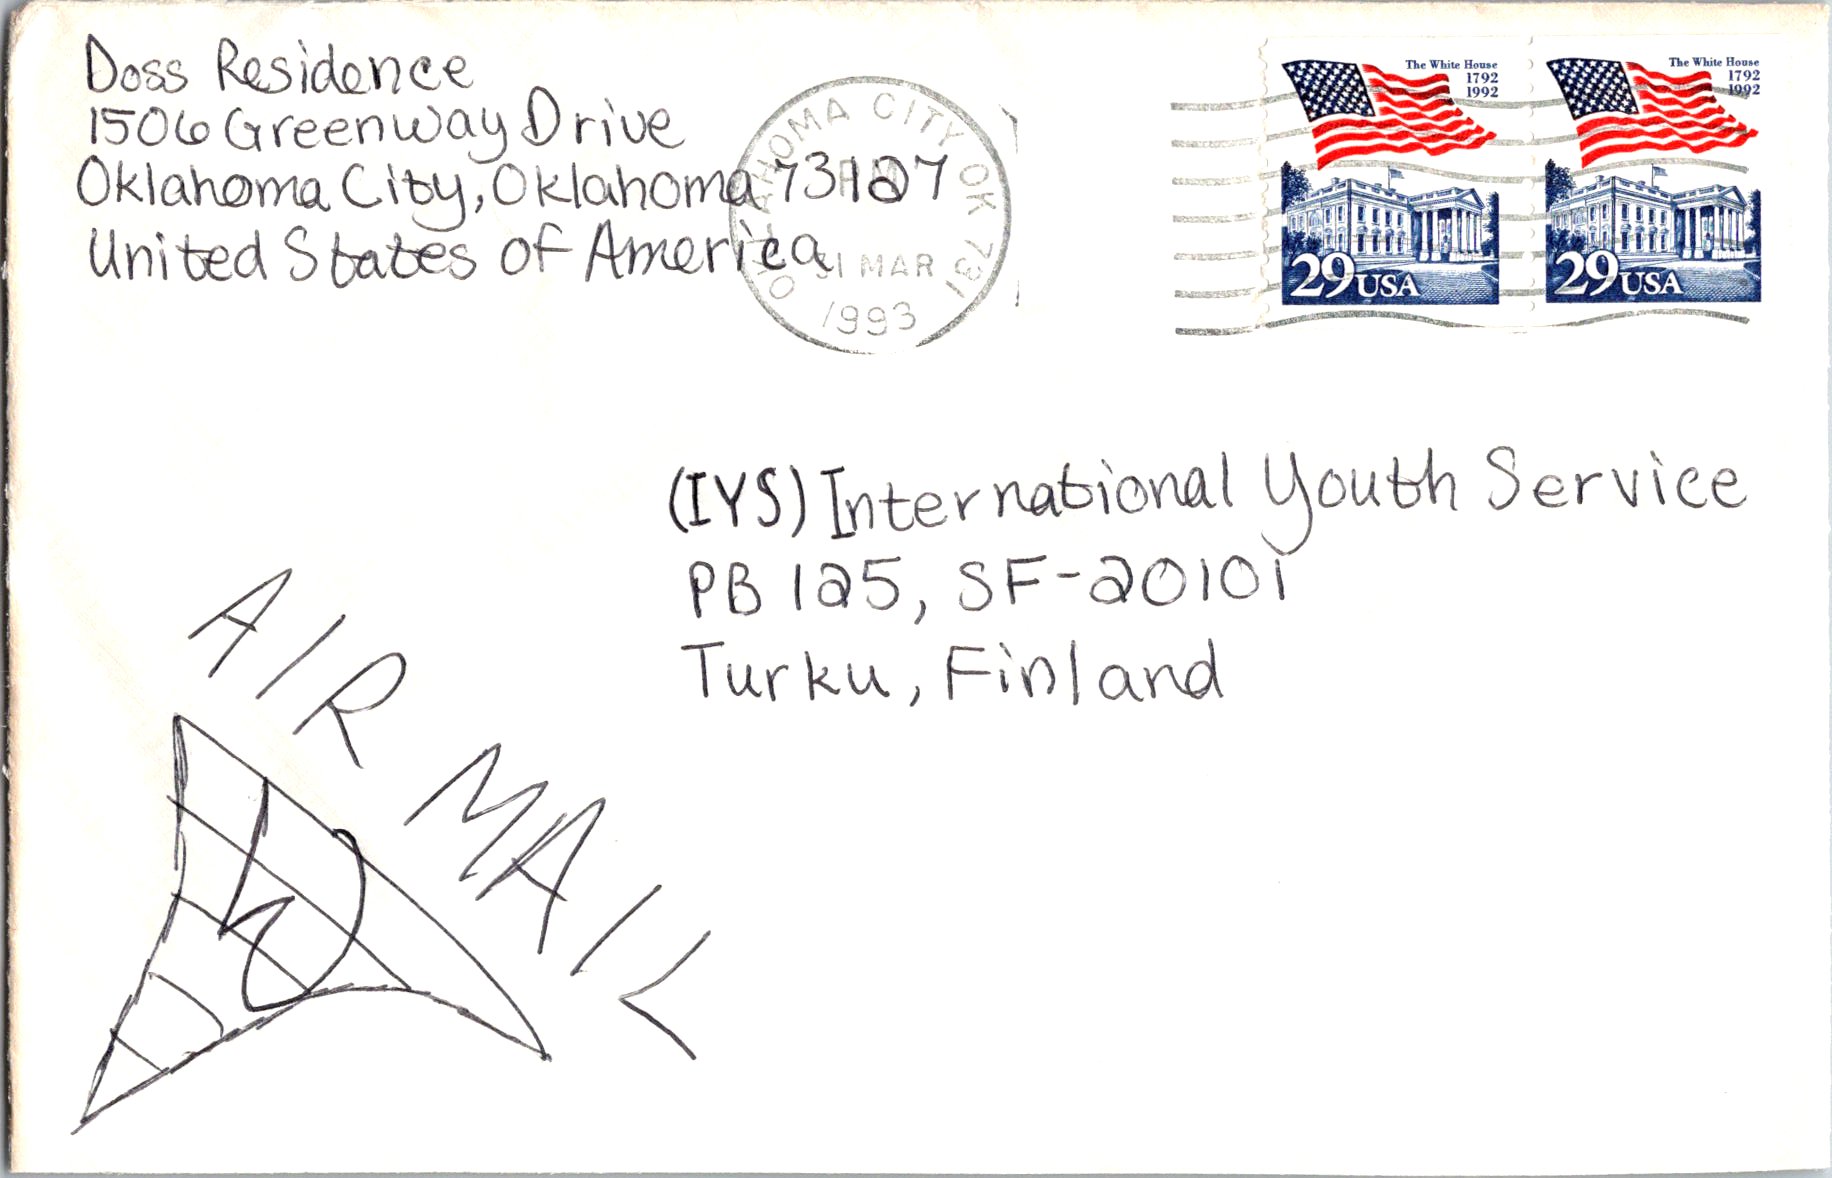 Doss Residence
1506 Greenway Drive
Oklahoma City, Oklahoma 73127
United States of America
OKLAHOMA CITY OK 731
31 MAR
1993
The White House
1792
1992
29 USA
The White House
1792
1992
29 USA
(IYS) International Youth Service
PB 125, SF-20101
Turku, Finland
AIR MAIL